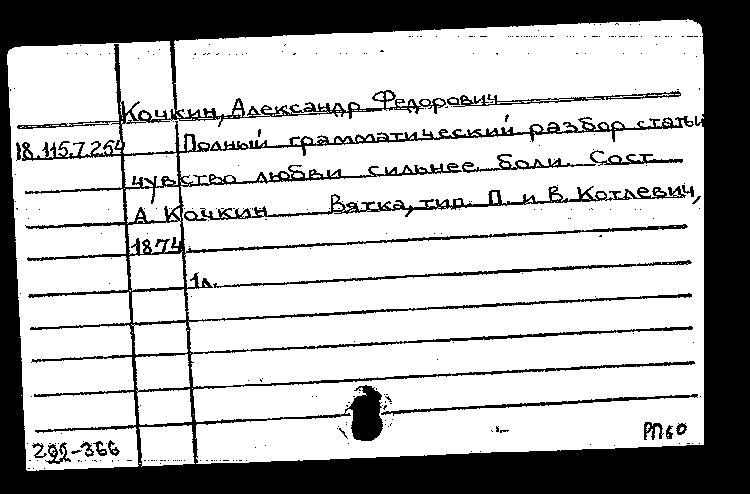 Кочкин, Александр Федорович
18.115.7.264 Полный грамматический разбор статьи
чувство любви сильнее боли. Сост.
А. Кочкин Вятка, тип. П. и В. Котлевич,
1874.
1л.
292-366
РП60